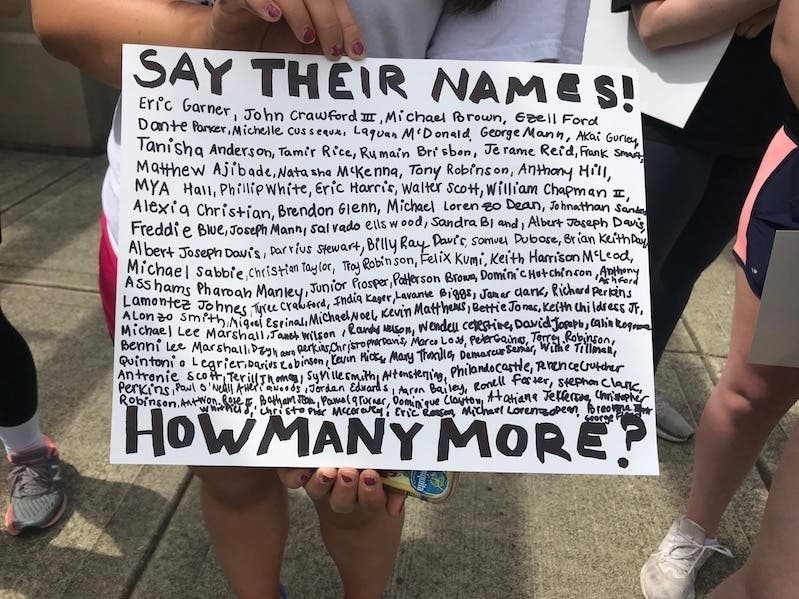 SAY THEIR NAMES!
Eric Garner, John Crawford III, Michael Brown, Ezell Ford
Dante Parker, Michelle Cusseaux, Laquan McDonald, George Mann, Akai Gurley,
Tanisha Anderson, Tamir Rice, Rumain Brisbon, Jerame Reid, Frank Smart,
Matthew Ajibade, Natasha McKenna, Tony Robinson, Anthony Hill,
MYA Hall, Phillip White, Eric Harris, Walter Scott, William Chapman II,
Alexia Christian, Brendon Glenn, Michael Lorenzo Dean, Johnathan Sanders
Freddie Blue, Joseph Mann, Salvado Ellswood, Sandra Bland, Albert Joseph Davis,
Albert Joseph Davis, Darrius Stewart, Billy Ray Davis, Samuel Dubose, Brian Keith Day,
Michael Sabbie, Christian Taylor, Troy Robinson, Felix Kumi, Keith Harrison McLeod,
Asshams Pharoah Manley, Junior Prosper, Patterson Brown, Dominic Hutchinson, Anthony Ashford
Lamontez Johnes, Tyree Crawford, India Kager, Lavante Biggs, James Clark, Richard Perkins
Alonzo Smith, Miguel Espinal, Michael Noel, Kevin Matthews, Bettie Jones, Keith Childress Jr,
Michael Lee Marshall, Janet Wilson, Randy Nelson, Wendell Celestine, David Joseph, Calin
Benni Lee Marshall, Perkins, Christopher Davis, Marco Loud, Peter Gaines, Torrey Robinson,
Quintonio Legrier, Darius Robinson, Kevin Hicks, Mary Truxillo, Demarcus Semer, Willie Tillman,
Antronie Scott, Terill Thomas, Syville Smith, Alton Sterling, Philando Castile, Terence Crutcher
Perkins, Paul O'Neal, Jordan Edwards, Aaron Bailey, Ronell Foster, Stephon Clark,
Robinson, Antwon Rose II, Botham Jean, Pamela Turner, Dominique Clayton, Atatiana Jefferson, Christopher
Whitfield, Christopher McCorvey, Eric Reason, Michael Lorenzo Dean, Breonna
George
HOW MANY MORE?